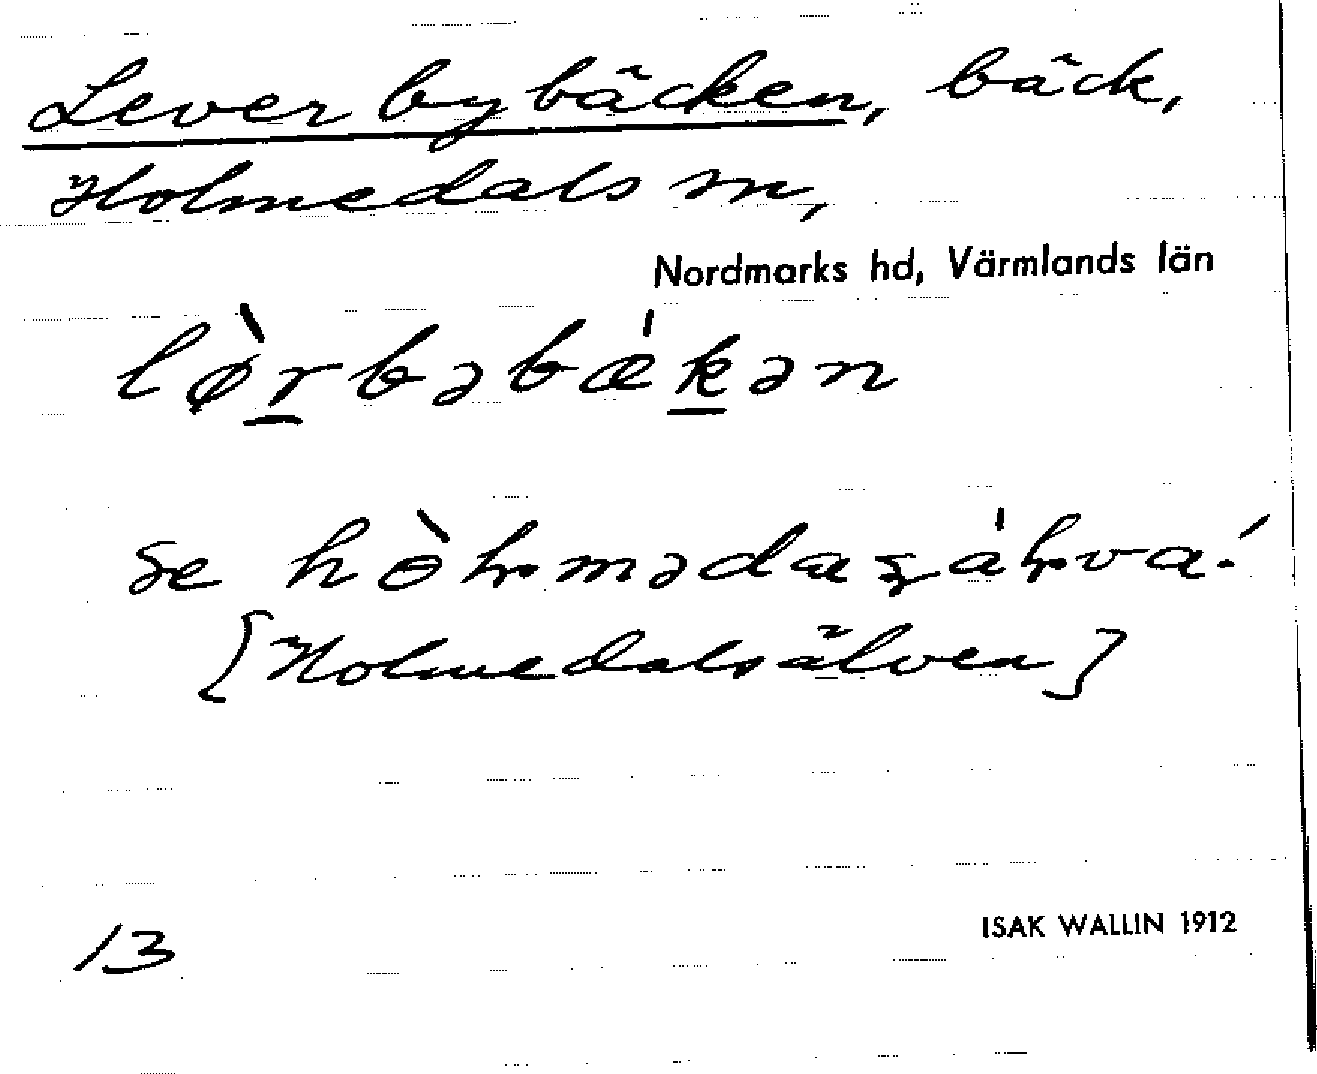 Leverbybäcken, bäck,
Holmedals sn,
Nordmarks hd, Värmlands län
lø̀r̲bəbǽk̲ən
se
[Holmedalsälven]
13
ISAK WALLIN 1912